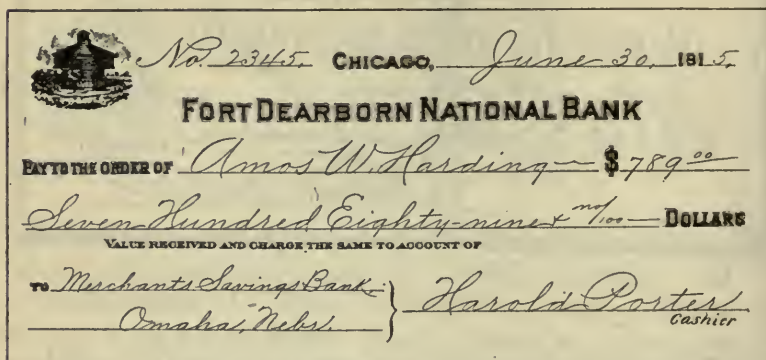 No. 2345. CHICAGO, June 30, 1915.
FORT DEARBORN NATIONAL BANK
PAY TO THE ORDER OF Amos W. Harding — $ 789 00
Seven Hundred Eighty-nine & no/100 — DOLLARS
VALUE RECEIVED AND CHARGE THE SAME TO ACCOUNT OF
TO Merchants Savings Bank, } Harold Porter
Omaha, Nebr. Cashier